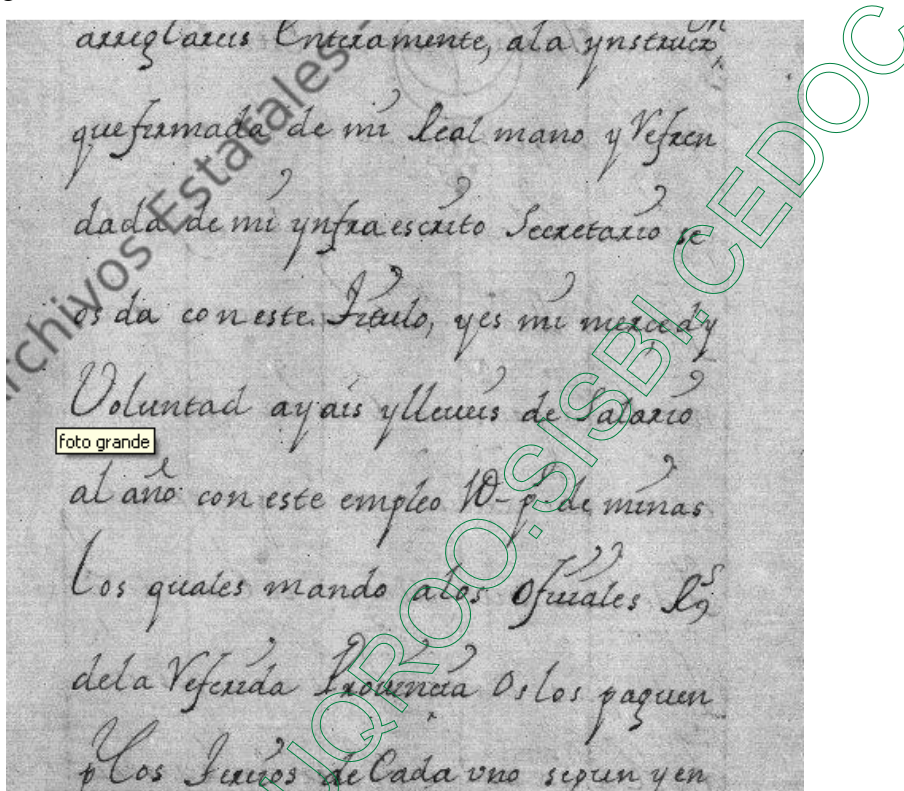 arreglareis Enteramente, ala ynstrucn
que firmada de mi Real mano y Refren
dada de mi ynfraescrito Secretario se
os da con este Titulo, y es mi merced y
Voluntad ayais y lleueis de Salario
foto grande
al año con este empleo ps de minas
Los quales mando alos Ofiiales Rs
dela Referida Prouincia Os los paguen
p Los Tercios de Cada vno segun y en
Archivos Estatales
UIQROO.SISBI.CEDOC